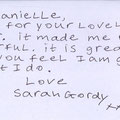 anielle,
for your lovel
it made me
rful. it is grea
you feel I am g
t I do.
Love
Sarah Gordy
xx